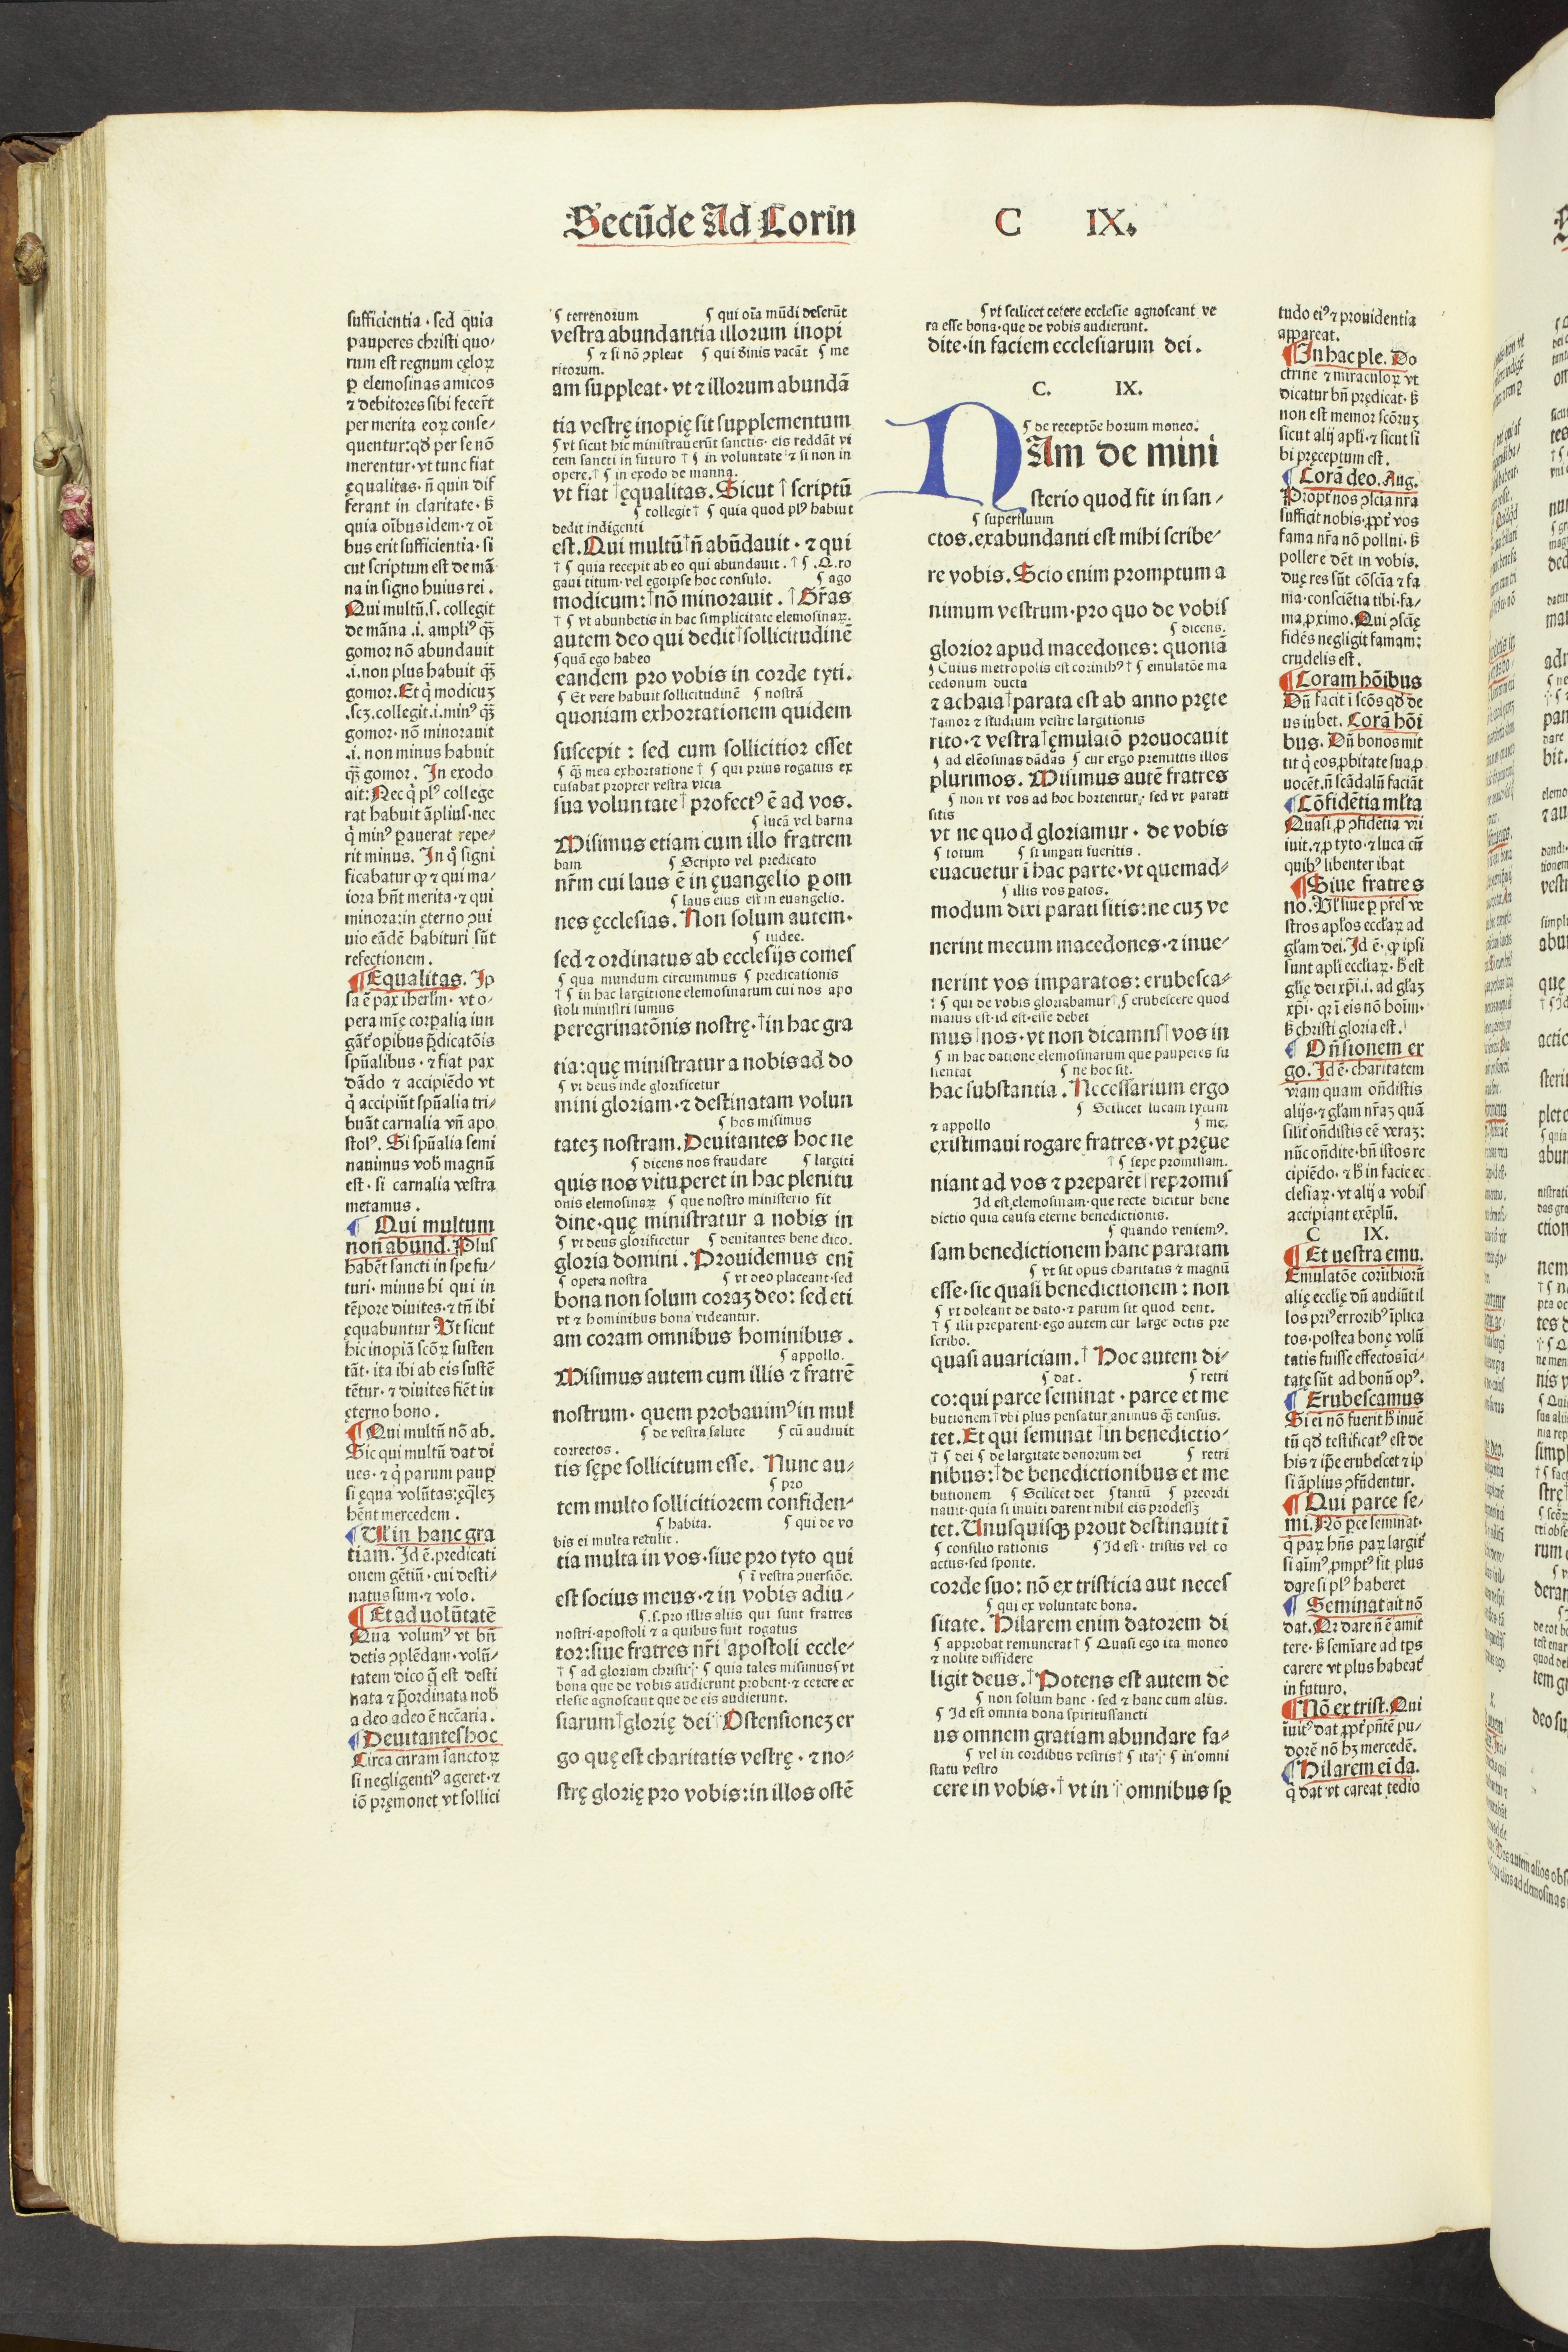 Secūde Ad Corin C IX.
sufficientia · sed quia
pauperes christi quo⸗
rum est regnum cęloꝝ
ꝑ elemosinas amicos
⁊ debitores sibi fecer̄t
per merita eoꝝ conse⸗
quentur: qd̄ per se nō
merentur · vt tunc fiat
ęqualitas · n̄ quin dif
ferant in claritate · ſꝫ
quia oībus idem · ⁊ oī
bus erit sufficientia · si
cut scriptum est de mā
na in signo huius rei .
Qui multū .s. collegit
de māna .i. ampliꝰ qꝫ̄
gomor nō abundauit
.i. non plus habuit qꝫ̄
gomor. Et q̇ modicuꝫ
.scꝫ. collegit .i. minꝰ qꝫ̄
gomor · nō minorauit
.i. non minus habuit
qꝫ̄ gomor . In exodo
ait: Nec q̇ plꝰ college
rat habuit āplius · nec
q̇ minꝰ ꝑauerat repe⸗
rit minus. In qͦ signi
ficabatur ꝙ ⁊ qui ma⸗
iora hn̄t merita · ⁊ qui
minora: in ęterno ꝯui
uio eādē habituri sūt
refectionem .
¶ Equalitas. Ip
sa ē pax iherl̄m · vt o⸗
pera mīę corꝑalia iun
gāt oꝑibus p̄dicatōis
spūalibus · ⁊ fiat pax
dādo ⁊ accipiēdo vt
q̇ accipiūt spūalia tri⸗
buāt carnalia vn̄ apo
stolꝰ. Si spūalia semi
nauimus vob̄ magnū
est · si carnalia vestra
metamus .
¶ Qui multum
non abund. Plus
habēt sancti in spe fu⸗
turi · minus hi qui in
tēpore diuites · ⁊ tn̄ ibi
ęquabuntur Vt sicut
hic inopiā scōꝝ susten
tāt · ita ibi ab eis sustē
tētur · ⁊ diuites fiēt in
ęterno bono .
¶ Qui multū nō ab.
Sic qui multū dat di
ues · ⁊ q̇ parum pauꝑ
si ęqua volūtas: ęq̄lez
hēnt mercedem .
¶ Vl̄ in hanc gra
tiam. Id ē. predicati
onem gētiū · cui desti⸗
natus sum · ⁊ volo .
¶ Et ad uolūtatē
Qua volumꝰ vt bn̄
detis ꝯplēdam · volū⸗
tatem dico q̄ est desti
nata ⁊ p̄ordinata nob̄
a deo adeo ē nccāria .
¶ Deuitantes hoc
Circa curam sanctoꝝ
si negligentiꝰ ageret · ⁊
iō pręmonet vt sollici
¶ terrenorum ¶ qui oīa mūdi deserūt
vestra abundantia illorum inopi
¶ ⁊ si nō ꝯpleat ¶ qui diuinis vacāt ¶ me
ritorum.
am suppleat · vt ⁊ illorum abundā
tia vestrę inopię sit supplementum
¶ vt sicut hic ministrauerūt sanctis · eis reddāt vi
cem sancti in futuro † ¶ in voluntate ⁊ si non in
opere. † ¶ in exodo de manna.
vt fiat † ęqualitas. Sicut † scriptū
¶ collegit † ¶ quia quod plꝰ habuit
dedit indigenti
est. Qui multū † n̄ abūdauit · ⁊ qui
† ¶ quia recepit ab eo qui abundauit . † ¶ .Q. ro
gaui titum · vel egoipse hoc consulo. ¶ ago
modicum: † nō minorauit . † Gr̄as
† ¶ vt abunbetis in hac simplicitate elemosinaꝝ.
autem deo qui dedit † sollicitudinē
¶ quā ego habeo
eandem pro vobis in corde tyti.
¶ Et vere habuit sollicitudinē ¶ nostrā
quoniam exhortationem quidem
suscepit : sed cum sollicitior esset
¶ qꝫ̄ mea exhortatione † ¶ qui prius rogatus ex
cusabat propter vestra vicia
sua voluntate † profectꝰ ē ad vos.
¶ lucā vel barna
Misimus etiam cum illo fratrem
bam ¶ Scripto vel predicato
nr̄m cui laus ē in ęuangelio ꝑ om
¶ laus eius est in euangelio.
nes ęcclesias. Non solum autem.
¶ iudee.
sed ⁊ ordinatus ab ecclesijs comes
¶ qua mundum circuimus ¶ predicationis
† ¶ in hac largitione elemosinarum cui nos apo
stoli ministri sumus
peregrinatōnis nostrę · † in hac gra
tia: quę ministratur a nobis ad do
¶ vt deus inde glorificetur
mini gloriam · ⁊ destinatam volun
¶ hos misimus
tateꝫ nostram. Deuitantes hoc ne
¶ dicens nos fraudare ¶ largiti
quis nos vituperet in hac plenitu
onis elemosinaꝝ ¶ que nostro ministerio fit
dine · quę ministratur a nobis in
¶ vt deus glorificetur ¶ deuitantes bene dico.
gloria domini . Prouidemus enī
¶ opera nostra ¶ vt deo placeant · sed
bona non solum coraꝫ deo: sed eti
vt ⁊ hominibus bona videantur.
am coram omnibus hominibus .
¶ appollo.
Misimus autem cum illis ⁊ fratrē
nostrum · quem probauimꝰ in mul
¶ de vestra salute ¶ cū audiuit
correctos .
tis sępe sollicitum esse. Nunc au⸗
¶ pro
tem multo sollicitiorem confiden⸗
¶ habita. ¶ qui de vo
bis ei multa retulit .
tia multa in vos · siue pro tyto qui
¶ ī vestra ꝯuersiōe.
est socius meus · ⁊ in vobis adiu⸗
¶ .s. pro illis aliis qui sunt fratres
nostri · apostoli ⁊ a quibus fuit rogatus
tor: siue fratres nr̄i apostoli eccle⸗
† ¶ ad gloriam christi · ¶ quia tales misimus vt
bona que de vobis audierunt probent · ⁊ cetere ec
clesie agnoscant que de eis audierunt.
siarum † glorię dei † Ostensioneꝫ er
go quę est charitatis vestrę · ⁊ no⸗
strę glorię pro vobis: in illos ostē
¶ vt scilicet cetere ecclesie agnoscant ve
ra esse bona · que de vobis audierunt.
dite · in faciem ecclesiarum dei .
C. IX.
¶ de receptōe horum moneo.
NAm de mini
sterio quod fit in san⸗
¶ superfluum
ctos. ex abundanti est mihi scribe⸗
re vobis. Scio enim promptum a
nimum vestrum · pro quo de vobis
¶ dicens.
glorior apud macedones: quoniā
¶ Cuius metropolis est corinthꝰ † ¶ emulatōe ma
cedonum ducta
⁊ achaia † parata est ab anno pręte
† amor ⁊ studium vestre largitionis
rito · ⁊ vestra † ęmulatō prouocauit
¶ ad eleōsinas dādas ¶ cur ergo premittis illos
plurimos. Misimus autē fratres
¶ non vt vos ad hoc hortentur · sed vt parati
sitis
vt ne quod gloriamur · de vobis
¶ totum ¶ si imꝑati fueritis .
euacuetur ī hac parte · vt quemad⸗
¶ illis vos ꝑatos.
modum dixi parati sitis: ne cuꝫ ve
nerint mecum macedones · ⁊ inue⸗
nerint vos imparatos: erubesca⸗
† ¶ qui de vobis gloriabamur † ¶ erubescere quod
maius est · id est · esse debet
mus nos · vt non dicamus vos in
¶ in hac datione elemosinarum que pauperes su
stentat ¶ ne hoc sit.
hac substantia . Necessarium ergo
¶ Scilicet lucam tytum
⁊ appollo ¶ me.
existimaui rogare fratres · vt pręue
† ¶ sepe promissam.
niant ad vos ⁊ preparēt † repromis
Id est elemosinam · que recte dicitur bene
dictio quia causa eterne benedictionis.
¶ quando veniemꝰ.
sam benedictionem hanc paratam
¶ vt sit opus charitatis ⁊ magnū
esse · sic quasi benedictionem : non
¶ vt doleant de dato · ⁊ parum sit quod dent.
† ¶ illi preparent · ego autem cur large detis pre
scribo.
quasi auariciam. † Hoc autem di⸗
¶ dat. ¶ retri
co: qui parce seminat · parce et me
butionem † vbi plus pensatur animus qꝫ̄ census.
tet. Et qui seminat † in benedictio⸗
† ¶ dei ¶ de largitate donorum dei ¶ retri
nibus: † de benedictionibus et me
butionem ¶ Scilicet det ¶ tantū ¶ preordi
nauit · quia si inuiti darent nihil eis prodessꝫ
tet. Unusquisqꝫ prout destinauit ī
¶ consilio rationis ¶ Id est · tristis vel co
actus · sed sponte.
corde suo: nō ex tristicia aut neces
¶ qui ex voluntate bona.
sitate. Hilarem enim datorem di
¶ approbat remunerat † ¶ Quasi ego ita moneo
⁊ nolite diffidere
ligit deus. † Potens est autem de
¶ non solum hanc · sed ⁊ hanc cum aliis.
¶ Id est omnia dona spiritussancti
us omnem gratiam abundare fa⸗
¶ vel in cordibus vestris † ¶ ita · ¶ in omni
statu vestro
cere in vobis. † vt in † omnibus sꝑ
tudo eiꝰ ⁊ prouidentia
appareat.
¶ In hac ple. Do
ctrinę ⁊ miraculoꝝ vt
dicatur bn̄ prędicat · ſꝫ
non est memor scōruꝫ
sicut alij apl̄i · ⁊ sicut si
bi pręceptum est .
¶ Corā deo. Aug.
Propt̄ nos ꝯscia nr̄a
sufficit nobis · ꝓpt̄ vos
fama nr̄a nō pollui · ſꝫ
pollere dēt in vobis.
duę res sūt cōscīa ⁊ fa
ma · consciētia tibi · fa⸗
ma ꝓximo. Qui ꝯscīę
fidēs negligit famam:
crudelis est .
¶ Coram hōibus
Dū facit ī scōs qd̄ de
us iubet. Corā hōi
bus. Dū bonos mit
tit q̇ eos ꝓbitate sua ꝓ
uocēt. n̄ scādalū faciāt
¶ Cōfidētia ml̄ta
Quasi ꝓ ꝯfidētia vr̄i
iuit. ⁊ ꝓ tyto · ⁊ luca cū
quibꝰ libenter ibat
¶ Siue fratres
no. Vl̄ siue ꝑ pr̄es ve
stros apl̄os eccl̄aꝝ ad
gl̄am dei. Id ē · ꝙ ipsi
sunt apl̄i eccliaꝝ · hꝫ est
gl̄ię dei xp̄i .i. ad gl̄aꝫ
xp̄i · qr ī eis nō hoīm ·
ſꝫ christi gloria est .
¶ On̄sionem er
go. Id ē · charitatem
vr̄am quam on̄distis
alijs · ⁊ gl̄am nr̄aꝫ quā
silit̄ on̄distis eē veraꝫ:
nūc on̄dite · bn̄ istos re
cipiēdo · ⁊ hꝫ in facie ec
clesiaꝝ · vt alij a vobis
accipiant exēplū.
C IX.
¶ Et uestra emu.
Emulatōe corīthiorū
alię ecclię dū audiūt il
los priꝰ erroribꝰ īplica
tos · postea bonę volū
tatis fuisse effectos ī ci⸗
tatę sūt ad bonū opꝰ.
¶ Erubescamus
Si ei nō fuerit hꝫ inuē
tū qd̄ testificatꝰ est de
his ⁊ ip̄e erubescet ⁊ ip
si āplius ꝯfūdentur.
¶ Qui parce se⸗
mi. Nō ꝑce seminat ·
q̇ paꝝ hn̄s paꝝ largit̄
si aīmꝰ ꝓmptꝰ sit plus
dare si plꝰ haberet
¶ Seminat ait nō
dat. Qr dare n̄ ē amit
tere · ſꝫ semīare ad tp̄s
carere vt plus habeat̄
in futuro.
¶ Nō ex trist. Qui
īuitꝰ dat ꝓpt̄ pn̄tē pu⸗
dorē nō hꝫ mercedē.
¶ Hilarem eī da.
q̇ dat vt careat tedio